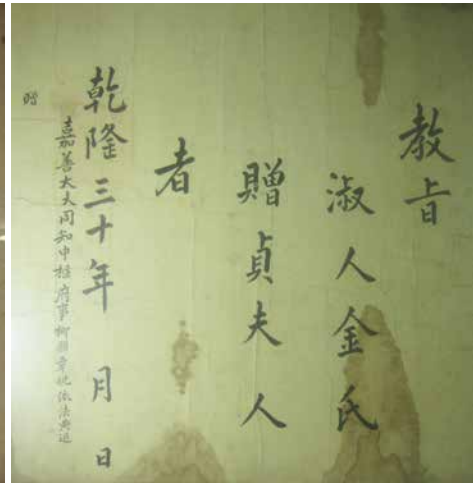 教旨
淑人金氏
贈貞夫人
者
乾隆三十年 月 日
嘉善大夫同知中樞府事柳章妣依法典追
贈